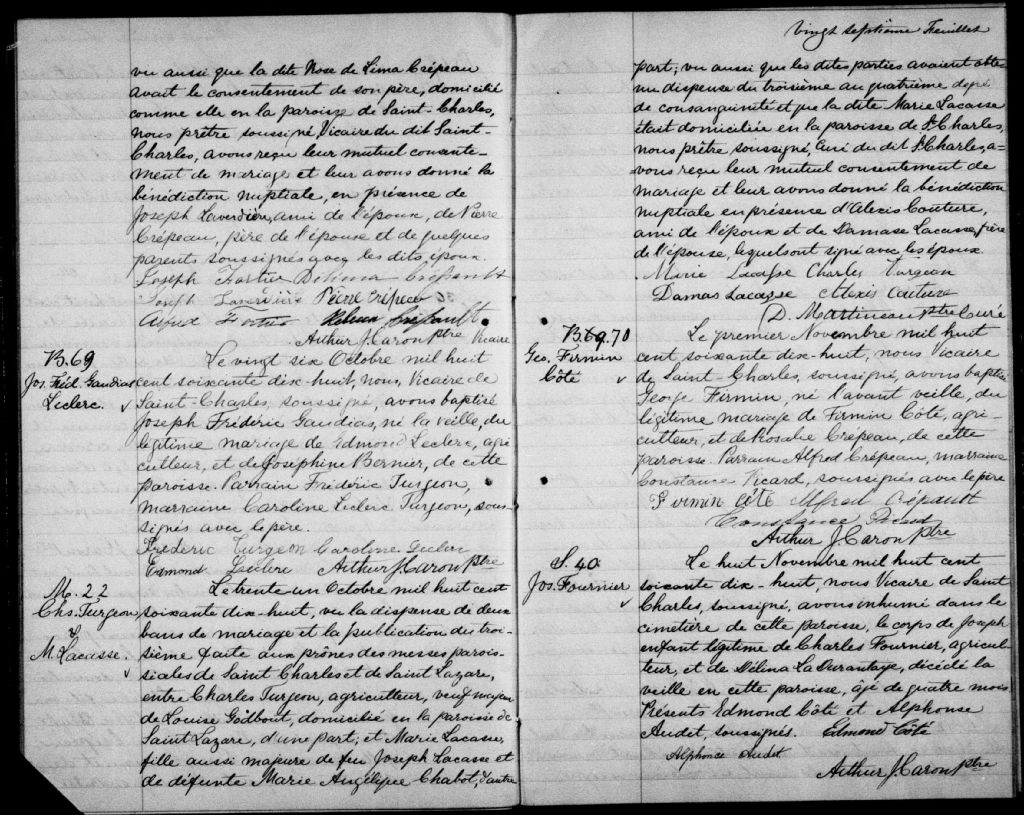 vu aussi que la dite Rose de Lima Crépeau
avait le consentement de son père, domicilié
comme elle en la paroisse de Saint-Charles,
nous prêtre soussigné, Vicaire du dit Saint-
Charles, avons reçu leur mutuel consente-
ment de mariage et leur avons donné la
bénédiction nuptiale, en présence de
Joseph Laverdière, ami de l'époux, de Pierre
Crépeau, père de l'épouse et de quelques
parents soussignés avec les dits époux.
Joseph Fortier Délima Crépault
Joseph Laverdière Pierre Crépeau
Alfred Fortier Crépault
Arthur J. Caron Ptre Vicaire
B. 69
Jos. Fréd. Gaudias
Leclerc.
Le vingt six Octobre mil huit
cent soixante dix-huit, nous, Vicaire de
Saint-Charles, soussigné, avons baptisé
Joseph Fréderic Gaudias, né la veille, du
légitime mariage de Edmond Leclerc, agri
culteur, et de Joséphine Bernier, de cette
paroisse. Parrain Fréderic Turgeon,
marraine Caroline Leclerc Turgeon, sous-
signés avec le père.
Fréderic Turgeon Caroline Leclerc
Edmond Leclerc Arthur J. Caron Ptre
M. 22
Chs. Turgeon
&
M. Lacasse.
Le trente un Octobre mil huit cent
soixante dix-huit, vu la dispense de deux
bans de mariage et la publication du troi-
sième faite aux prônes des messes parois-
siales de Saint Charles et de Saint Lazare,
entre Charles Turgeon, agriculteur, veuf majeur
de Louise Godbout, domicilié en la paroisse de
Saint Lazare, d'une part; et Marie Lacasse,
fille aussi majeure de feu Joseph Lacasse et
de défunte Marie Angélique Chabot, d'autre
Vingt septième Feuillet
part; vu aussi que les dites parties avaient obtenu
un dispense du troisième au quatrième degré
de consanguinité et que la dite Marie Lacasse
était domiciliée en la paroisse de St Charles,
nous prêtre soussigné, Curé du dit St Charles, a-
vons reçu leur mutuel consentement de
mariage et leur avons donné la bénédiction
nuptiale en présence d'Alexis Couture,
ami de l'époux et de Damase Lacasse, frère
de l'épouse, lequels ont signé avec les époux.
Marie Lacasse Charles Turgeon
Damas Lacasse Alexis Couture
D. Martineau ptre Curé
B. 69. 70
Geo. Firmin
Côté
Le premier Novembre mil huit
cent soixante dix-huit, nous Vicaire
de Saint-Charles, soussigné, avons baptisé
George Firmin, né l'avant veille, du
légitime mariage de Firmin Côté, agri-
culteur, et de Rosalie Crépeau, de cette
paroisse. Parrain Alfred Crépeau, marraine
Constance Picard, soussignés avec le père
Firmin Côté Alfred Crépault
Constance Picard
Arthur J. Caron Ptre
S. 40.
Jos. Fournier
Le huit Novembre mil huit cent
soixante dix-huit, nous Vicaire de Saint
Charles, soussigné, avons inhumé dans le
cimetière de cette paroisse, le corps de Joseph
enfant légitime de Charles Fournier, agricul-
teur, et de Délina La Durantaye, décédé la
veille en cette paroisse, âgé de quatre mois.
Présents Edmond Côté et Alphonse
Audet, soussignés. Edmond Côté
Alphonce Audet
Arthur J. Caron Ptre